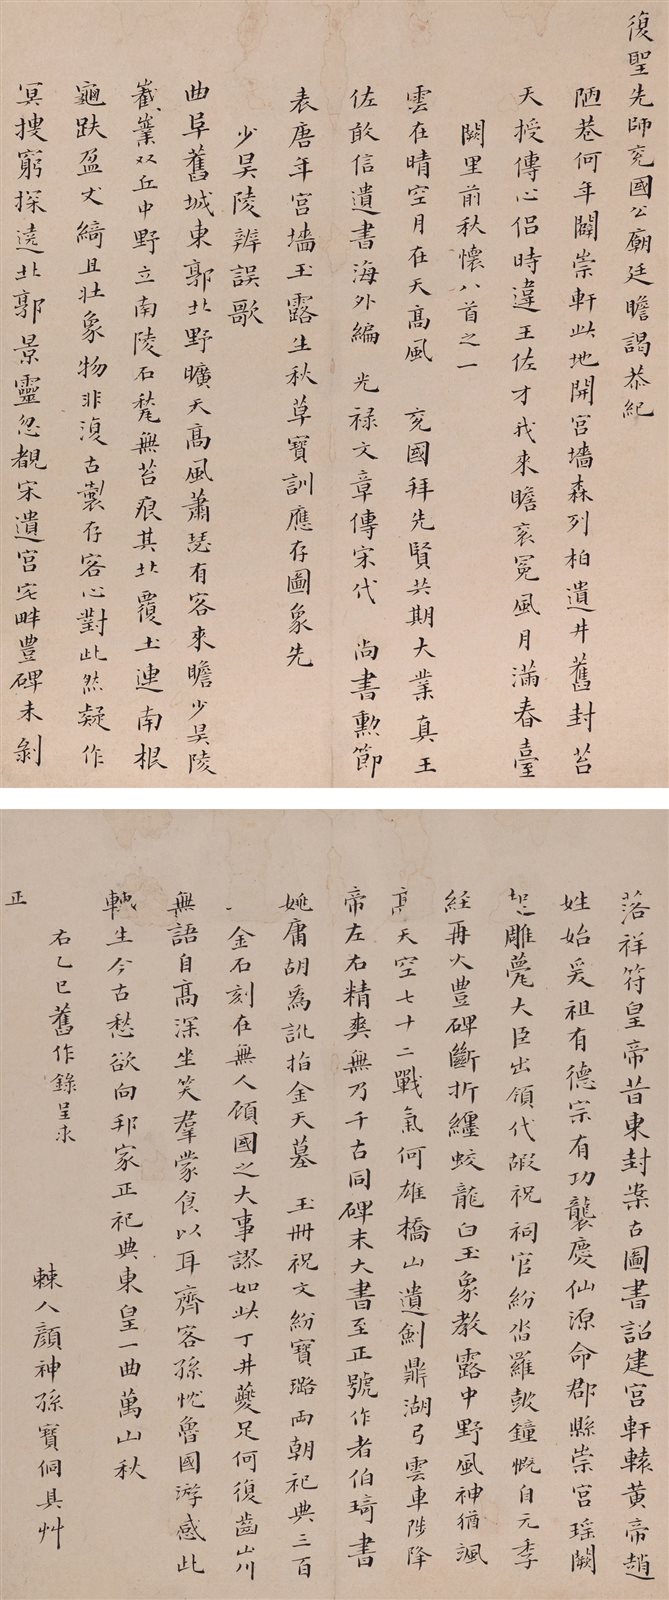 復聖先師兗國公廟廷瞻謁恭紀
陋巷何年闢崇軒此地開宮墻森列柏遺井舊封苔
天授傳心侶時違王佐才我來瞻袞冕風月滿春臺
闕里前秋懷八首之一
雲在晴空月在天高風 兗國拜先賢共期大業真王
佐敢信遺書海外編 光祿文章傳宋代 尚書勳節
表唐年宮墻玉露生秋草寶訓應存圖象先
少昊陵辨誤歌
曲阜舊城東郭北野曠天高風蕭瑟有客來瞻少昊陵
嶻嶪双丘中野立南陵石甃無苔痕其北覆土連南根
龜趺盈丈綺且壯象物非復古製存客心對此然疑作
冥搜窮探遶北郭景靈忽覩宋遺宮宅畔豊碑未剝
落祥符皇帝昔東封案古圖書詔建宮軒轅黃帝趙
姓始爰祖有德宗有功襲慶仙源命郡縣崇宮瑤闕
雕甍大臣出領代嘏祝祠官紛沓羅鼓鐘慨自元季
經再火豊碑斷折纏蛟龍白玉象教露中野風神猶颯
天空七十二戰氣何雄橋山遺劍鼎湖弓雲車陟降
帝左右精爽無乃千古同碑末大書至正號作者伯琦書
姚庸胡爲訛指金天墓 玉冊祝文紛寶璐兩朝祀典三百
金石刻在無人顧國之大事謬如此丁井夔足何復齒山川
無語自高深坐笑羣蒙食以耳齊客孫忱魯國游感此
輒生今古愁欲向邦家正祀典東皇一曲萬山秋
右乙巳舊作錄呈求
正
棘人顏神孫寶侗具艸